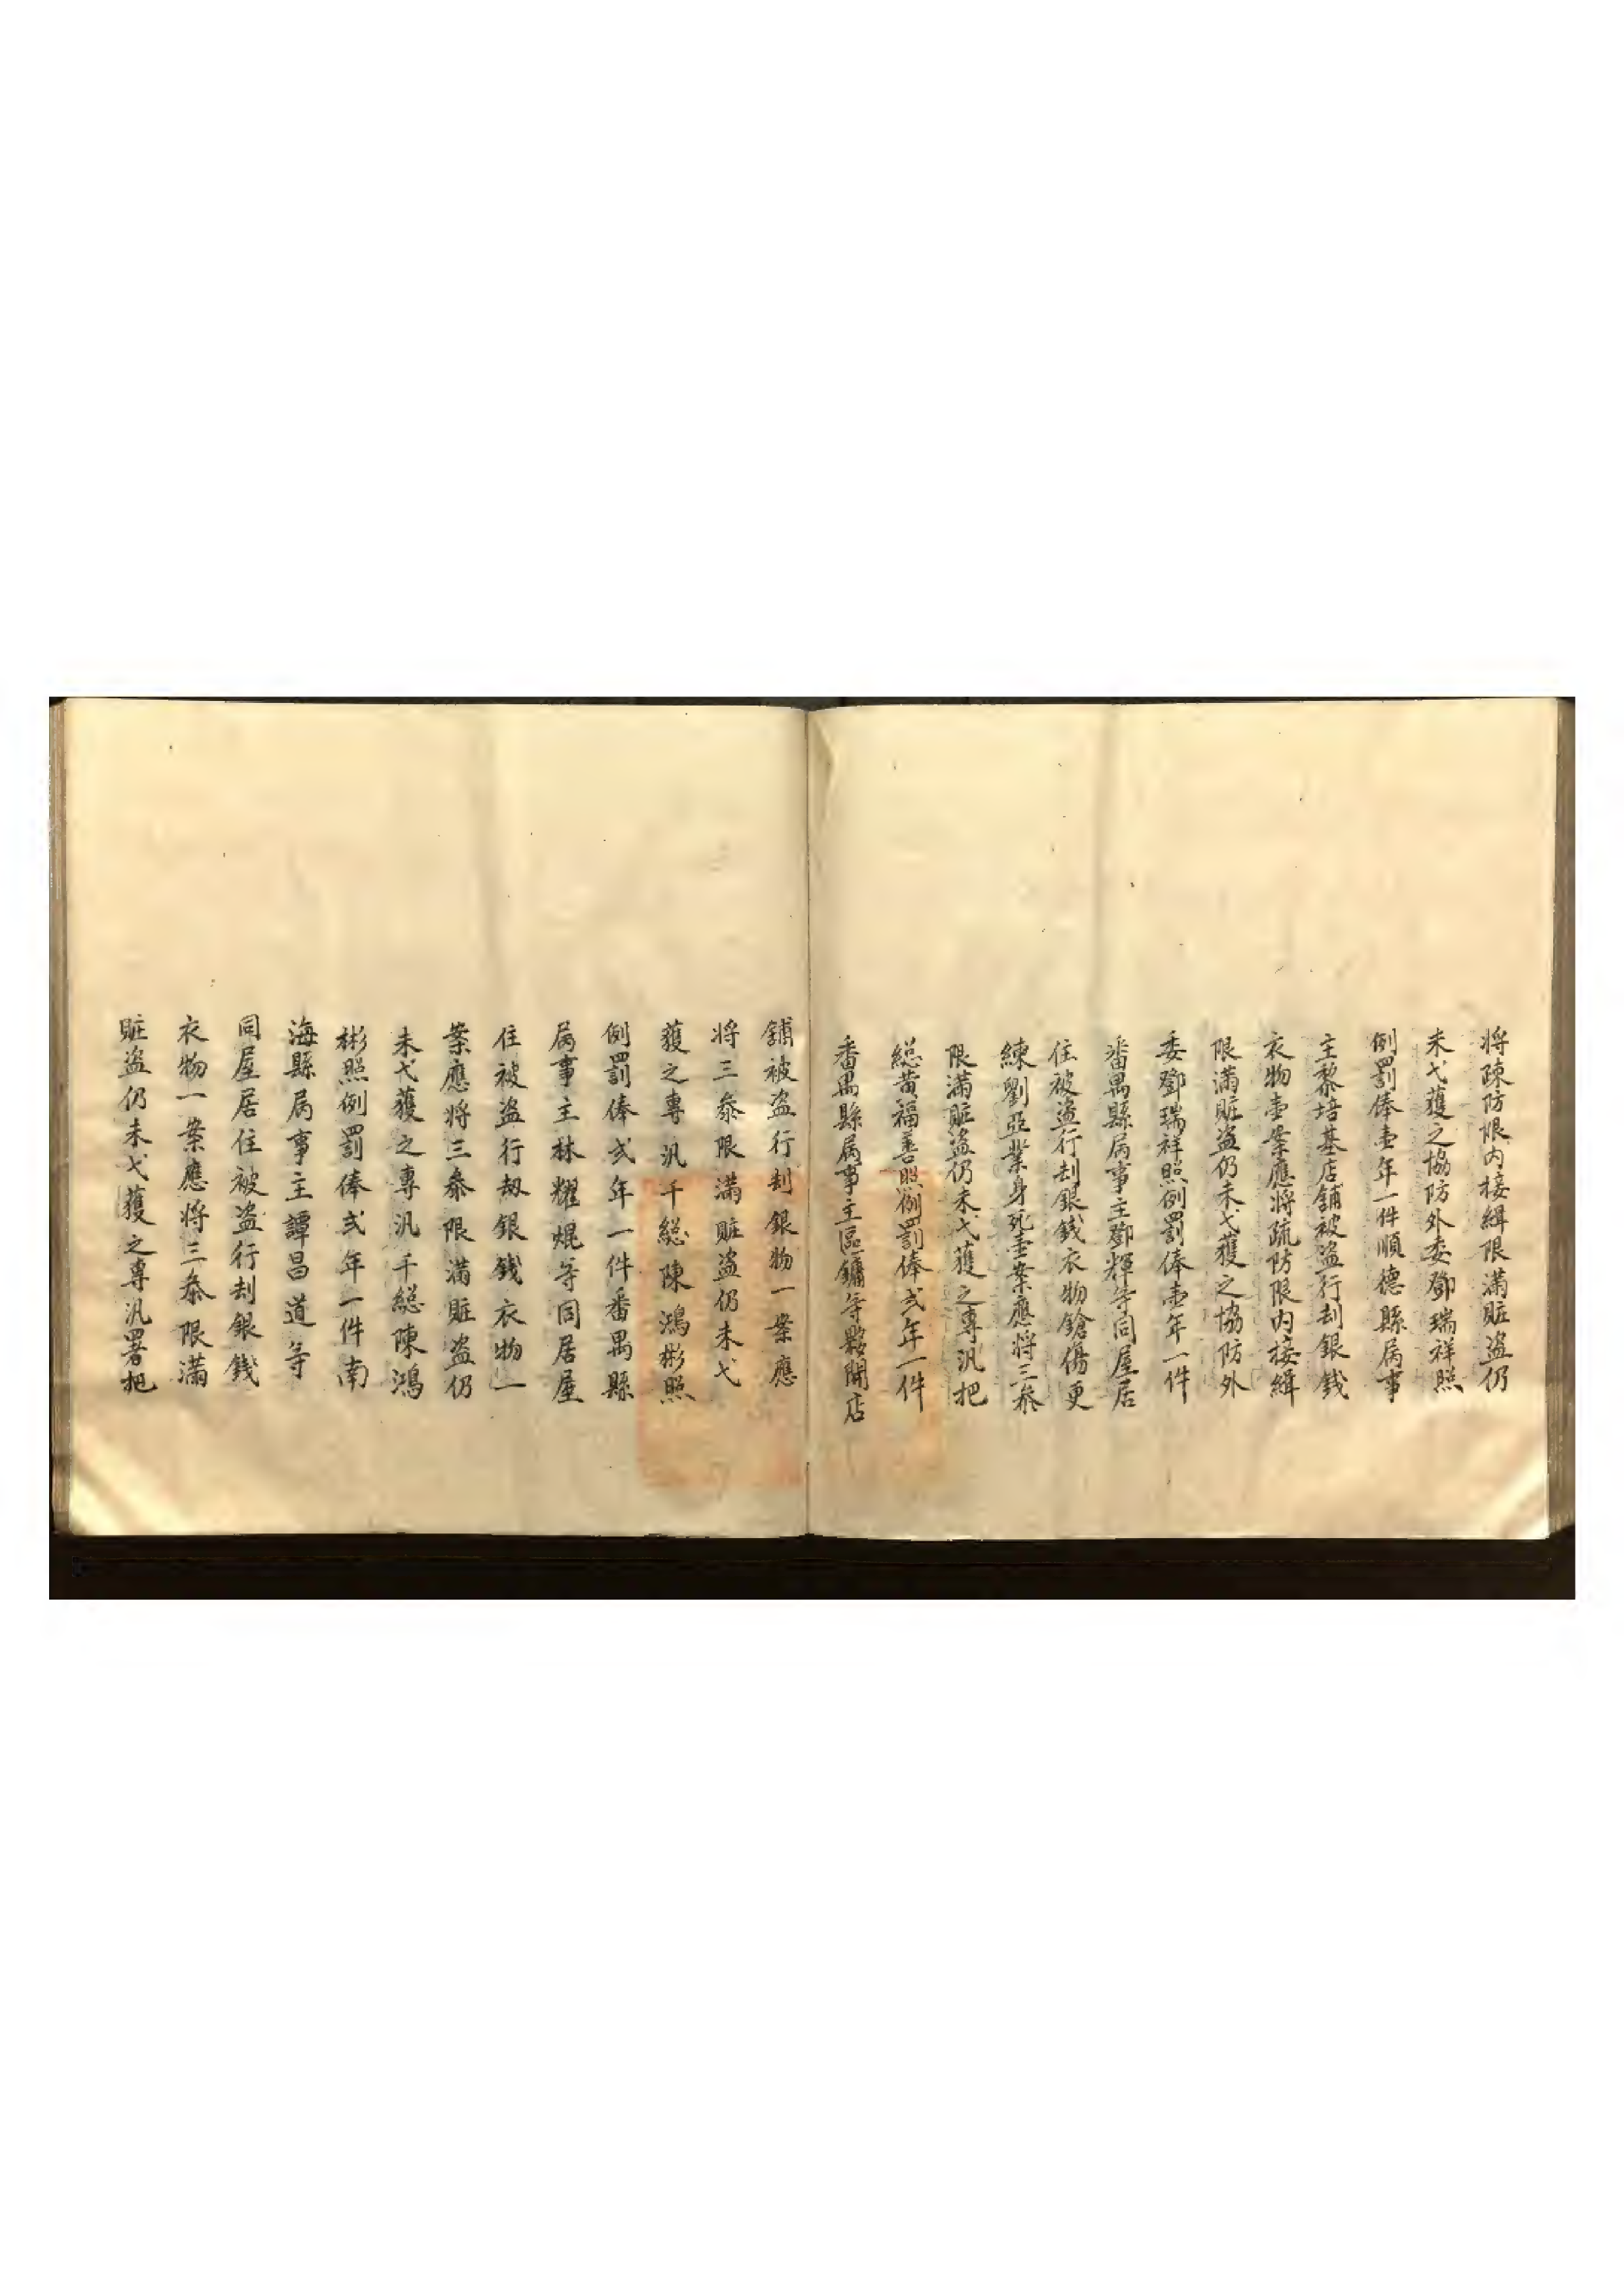 將疎防限内接緝限滿賍盗仍
未弋獲之協防外委鄧瑞祥照
例罰俸壹年一件順德縣属事
主黎培基店舖被盗行刦銀錢
衣物壹案應將疏防限内接緝
限滿賍盗仍未弋獲之協防外
委鄧瑞祥照例罰俸壹年一件
番禺縣属事主鄧輝等同屋居
住被盗行刦銀錢衣物鎗傷更
練劉亞業身死壹案應將三叅
限滿賍盗仍未弋獲之專汛把
總黄福善照例罰俸弍年一件
番禺縣属事主區鏞等夥開店
舖被盗行刦銀物一案應
將三叅限滿賍盗仍未弋
獲之專汛千總陳鴻彬照
例罰俸弍年一件番禺縣
属事主林耀焜等同居屋
住被盗行刼銀錢衣物一
案應將三叅限滿賍盗仍
未弋獲之專汛千總陳鴻
彬照例罰俸弍年一件南
海縣属事主譚昌道等
同屋居住被盗行刦銀錢
衣物一案應將三叅限滿
賍盗仍未弋獲之專汛署把